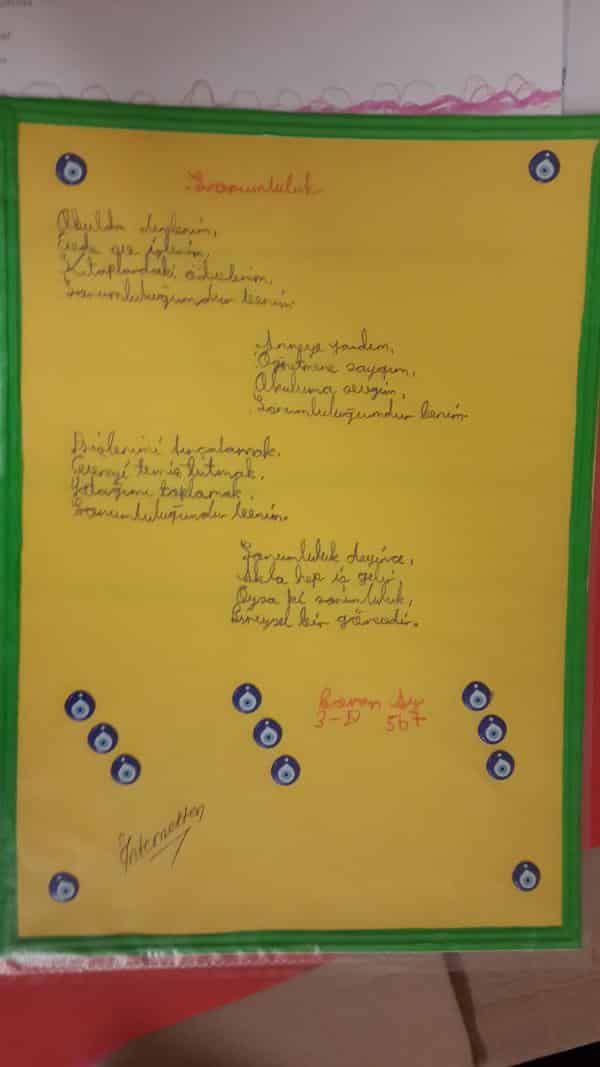 Sorumluluk
Okulda derslerim,
Evde ise işlerim,
Kitaplardaki ödevlerim,
Sorumluluğumdur benim.
Anneye yardım,
Öğretmene saygım,
Okuluma sevgim,
Sorumluluğumdur benim.
Dişlerimi fırçalamak,
Çevreyi temiz tutmak,
Yatağımı toplamak,
Sorumluluğumdur benim.
Sorumluluk deyince,
Akla hep iş gelir,
Oysa ki sorumluluk,
Bireysel bir görevdir.
3-D 567
İnternetten